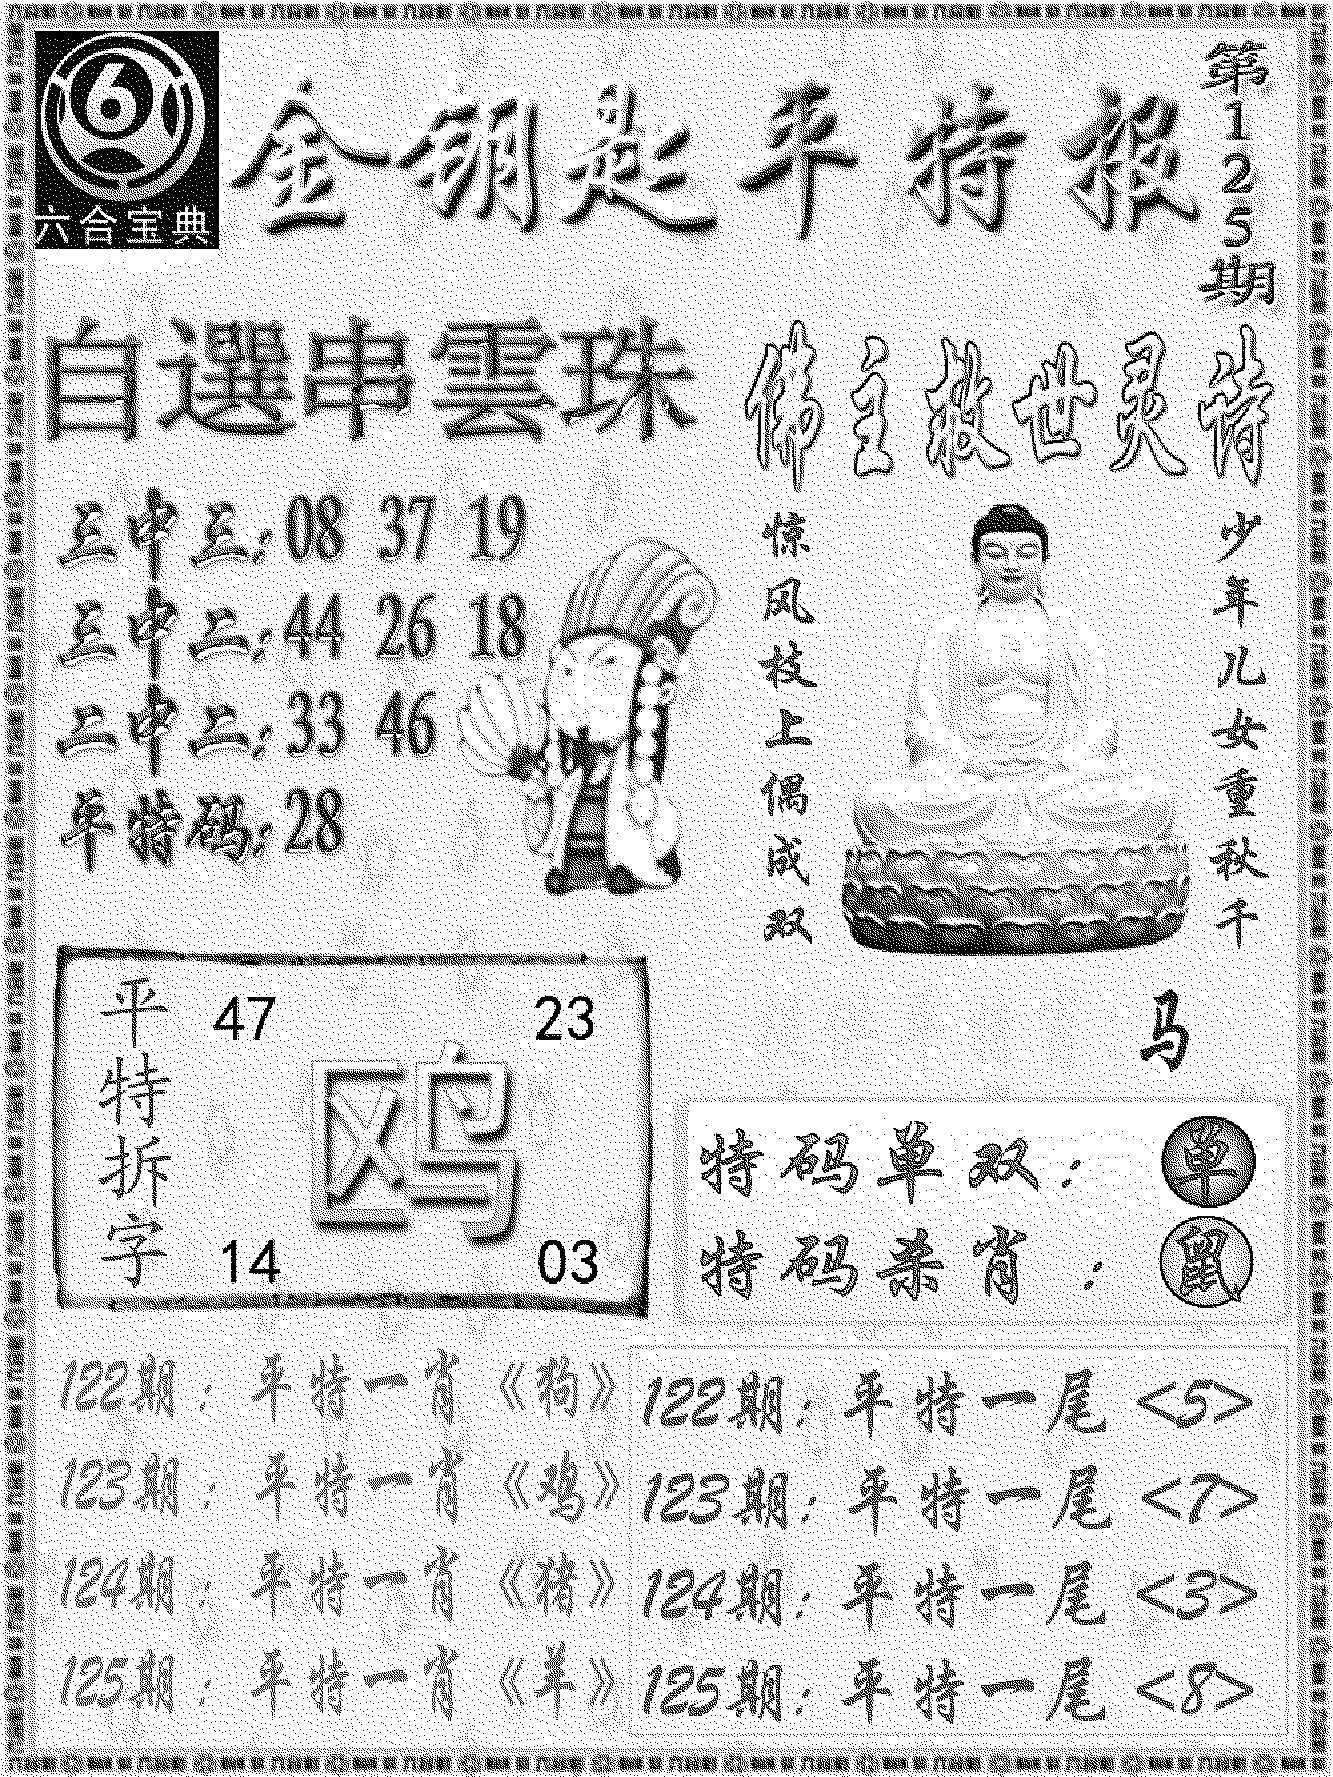 六合宝典
金钥匙平特报
第125期
自選串雲珠
三中三:08 37 19
三中二:44 26 18
二中二:33 46
平特码:28
佛主救世灵诗
少年儿女重秋千
惊风枝上偶成双
马
平特拆字
47 23
鸥
14 03
特码单双:单
特码杀肖:鼠
122期:平特一肖《狗》
123期:平特一肖《鸡》
124期:平特一肖《猪》
125期:平特一肖《羊》
122期:平特一尾<5>
123期:平特一尾<7>
124期:平特一尾<3>
125期:平特一尾<8>